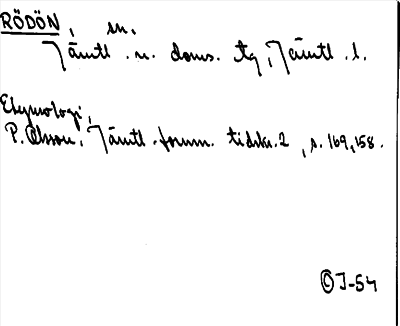 RÖDÖN, sn.
Jämtl. n. doms. tg, Jämtl. l.
Etymologi,
P. Olsson, Jämtl. fornm. tidskr. 2, s. 169, 158.
© J-54